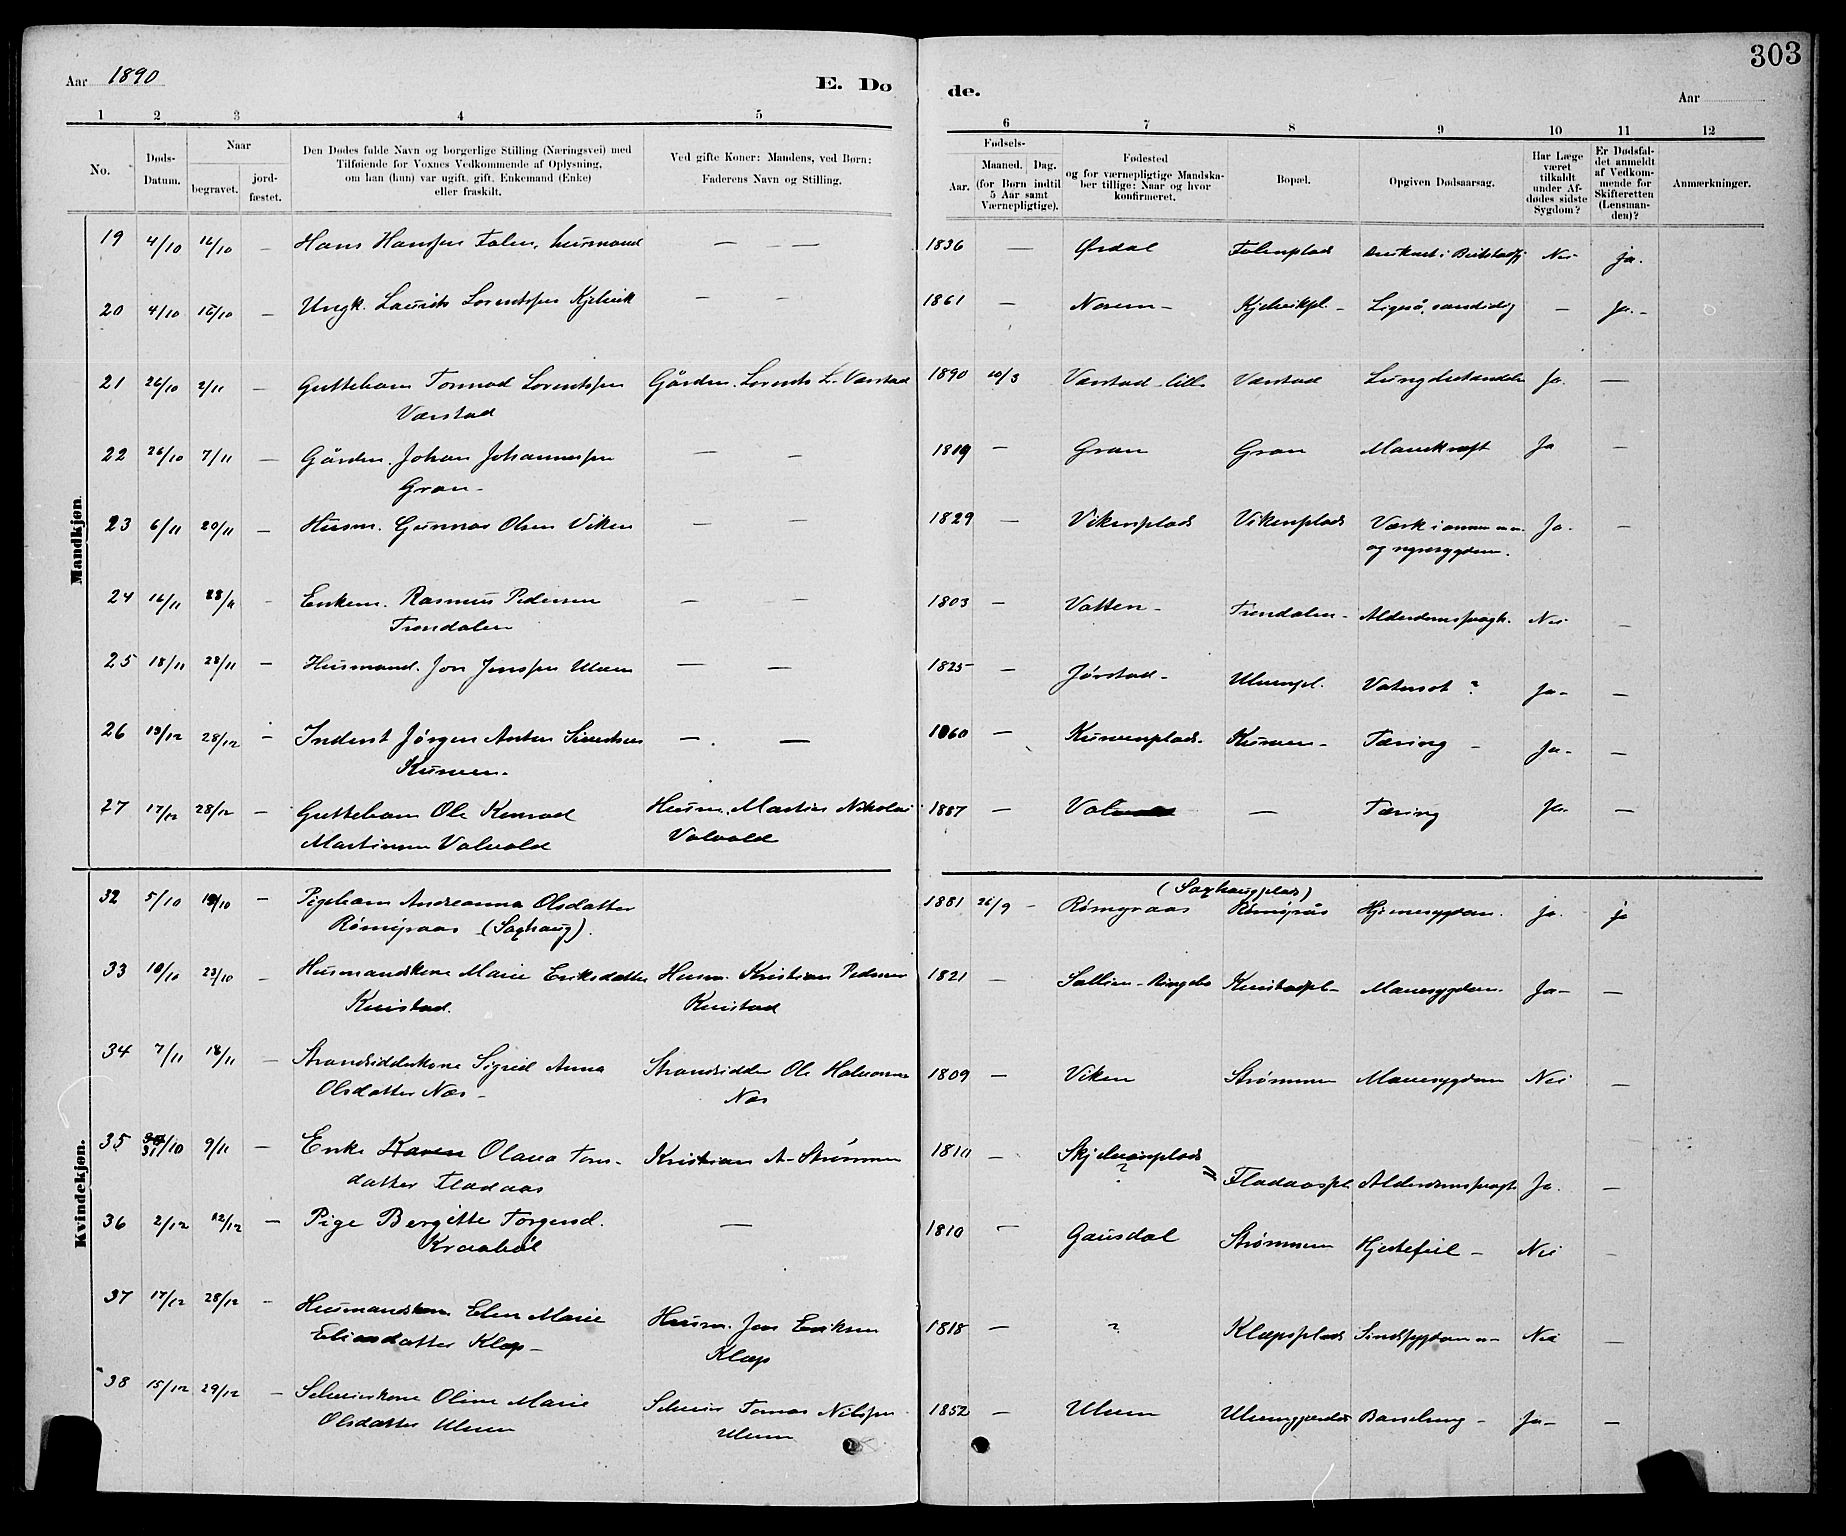 303
Aar 1890
E. Dø
de.
Aar
1 2 3 4 5 6 7 8 9 10 11 12
No.
Døds-
Datum.
Naar
begravet.
jord-
fæstet.
Den Dødes fulde Navn og borgerlige Stilling (Næringsvei) med
Tilføiende for Voxnes Vedkommende af Oplysning,
om han (hun) var ugift, gift, Enkemand (Enke)
eller fraskilt.
Ved gifte Koner: Mandens, ved Børn:
Faderens Navn og Stilling.
Fødsels-
Aar.
Maaned. Dag.
(for Børn indtil
5 Aar samt
Værnepligtige).
Fødested
og for værnepligtige Mandska-
ber tillige: Naar og hvor
konfirmeret.
Bopæl.
Opgiven Dødsaarsag.
Har Læge
været
tilkaldt
under Af-
dødes sidste
Sygdom?
Er Dødsfal-
det anmeldt
af Vedkom-
mende for
Skifteretten
(Lensman-
den)?
Anmærkninger.
Mandkjøn.
19 4/10 16/10 — Hans Hanssen Folen, husmand — — 1836 — Ørdal Folenplads Druknet i Beitstadfj. Nei ja.
20 4/10 15/10 — Ungk. Laurits Lorentssen Kjelvik — — 1861 — Norem — Kjelvikpl. — Ligeså, samtidig — Ja. —
21 26/10 2/11 — Guttebarn Lorentssen Gårdm. Lorents L. Værstad 1890 10/3 Værstad lille Værstad Ja. —
Værstad
22 26/10 7/11 — Gårdm. Johan Johannessen — — 1819 — Gran Gran Mavekræft Ja —
Gran —
23 6/11 20/11 — Husm. Gunnar Olsen Viken — — 1829 — Vikenplads Vikenplads Værk i Ja. —
og nyresygdom.
24 16/11 28/11 - Enkem. Rasmus Pedersen — — 1803 — Vatten — Trondalen — Alderdomssvagh. Nei —
Trondalen
25 18/11 28/11 — Husmand. Jon Jenssen Ulven — — 1825 — Jørstad — Ulvenpl. Vatersot ? Ja — —
26 19/12 28/12 - Inderst Jørgen Anton Sivertsen — . — 1860 — Kurvenplads. Kurven — Tæring — Ja — —
Kurven.
27 17/12 28/12 — Guttebarn Ole Konrad Husm. Martin Nikolai 1887 — — Tæring Ja. —
Martinsen Valvold Valvold
Kvindekjøn.
32 5/10 19/10 — Pigebarn Andreanna Olsdatter 1881 26/9 — Rømgraas (Saxhaugplads) Rømgrås Hjernesygdom. ja. ja
Rømgraas (Saxhaug).
33 10/10 23/10 — Husmandskone Marie Eriksdatter Husm. Kristian Pedersen 1821 — Ringebo Knistadpl — Mavesygdom. Ja — —
Knistad. Knistad
34 7/11 18/11 — Strandsidderkone Sigrid Anna Strandsidder Ole Halvorsen 1809 — Viken Strømmen Mavesygdom Nei —
Olsdatter Næs — Næs
35 31/10 9/11 — Enke Karen Olava Tors- Kristian A. Strømmen 1810 — Skjelvanplads ? Fladaaspl. Alderdomssvagh. Ja. —
datter Fladaas
36 2/12 12/12 — Pige Bergitte Torgersd. — 1810 — Gausdal Strømmen Hjertefeil — Nei —
Kraabøl
37 17/12 28/12 - Husmandskone Elen Marie Husm. Jon Eriksen 1818 — ? Klæpsplads Sindssygdom Nei —
Eliasdatter Klæp — Klæp
38 15/12 29/12 — Selveierkone Oline Marie Selveier Tomas Nilssen 1852 — Ulven Barselseng — Ja — —
Olsdatter Ulven Ulven